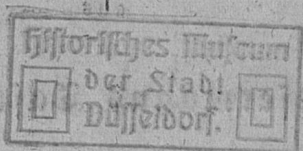 Historisches Museum
der Stadt
Düsseldorf.